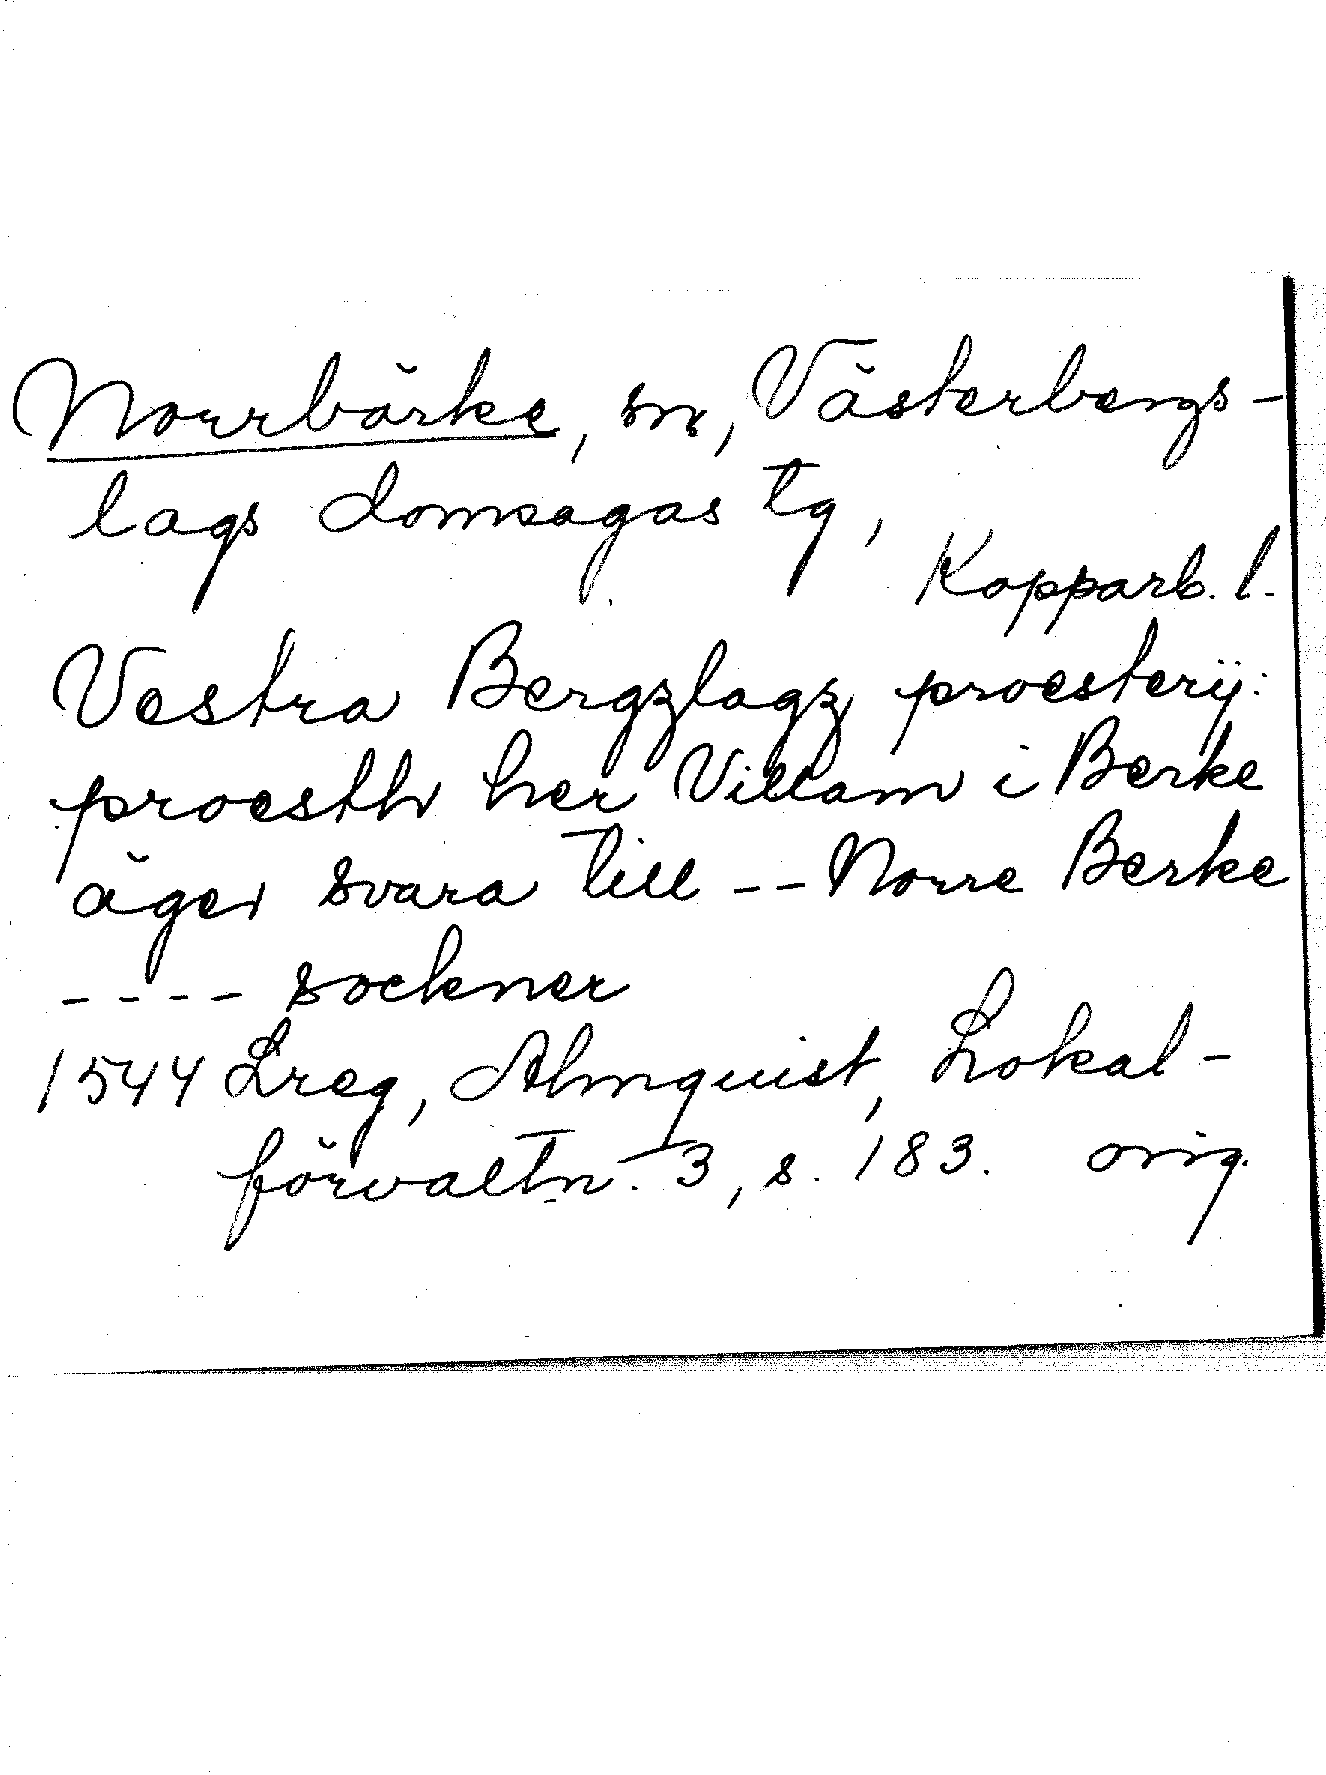 Norrbärke, sn, Västerbergs-
lags domsagas tg,
Kopparb. l.
Vestra Bergzlagz proesterij:
proesth her Villam i Berke
äger svara till -- Norre Berke
---- sockner
1544 Lreg, Almquist, Lokal-
förvaltn. 3, s. 183. orig.